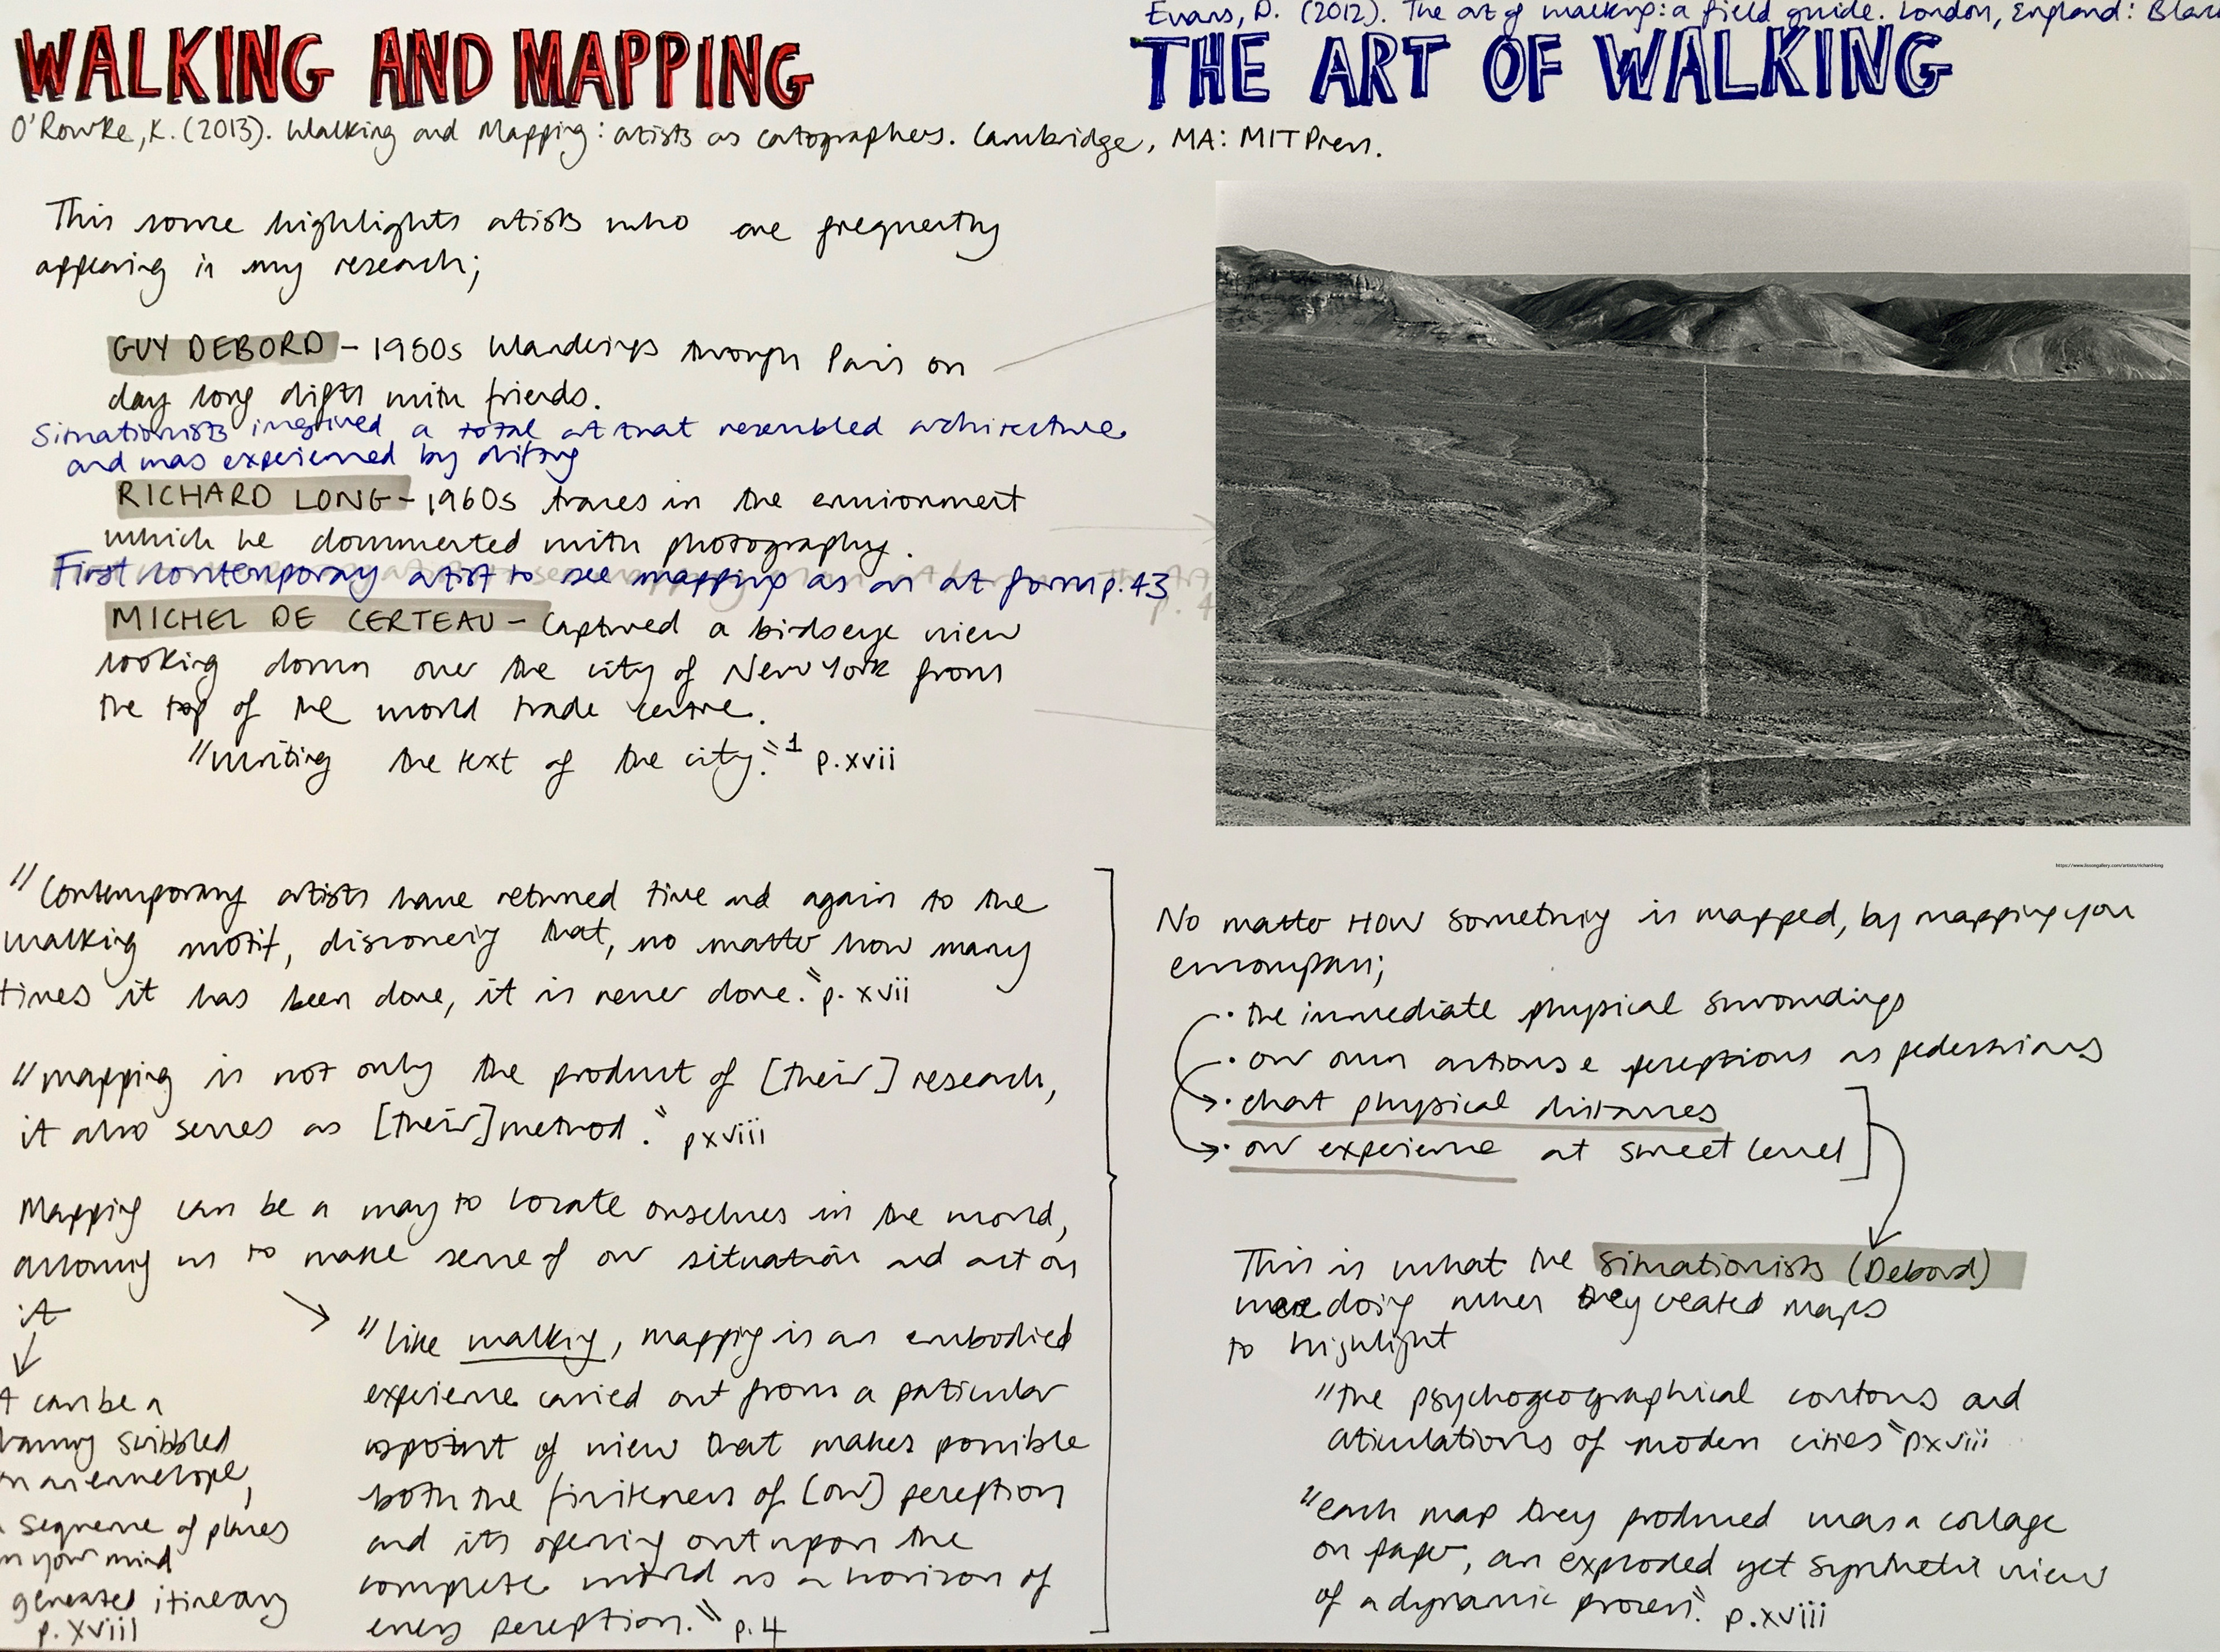 Evans, D. (2012). The art of walking: a field guide. London, England: Blac
WALKING AND MAPPING
THE ART OF WALKING
O'Rourke, K. (2013). Walking and Mapping: artists as cartographers. Cambridge, MA: MIT Press.
This source highlights artists who are frequently
appearing in my research;
GUY DEBORD - 1950s Wanderings through Paris on
day long drifts with friends.
Situationists imagined a total art that resembled architecture
and was experienced by drifting
RICHARD LONG - 1960s traces in the environment
which he documented with photography.
First contemporary artist to see mapping as an art form p.43
MICHEL DE CERTEAU - Captured a birdseye view
looking down over the city of New York from
the top of the world trade centre.
"writing the text of the city."1 p.xvii
"Contemporary artists have returned time and again to the
walking motif, discovering that, no matter how many
times it has been done, it is never done." p. xvii
"mapping is not only the product of [their] research,
it also serves as [their] method." pxviii
Mapping can be a way to locate ourselves in the world,
allowing us to make sense of our situation and act on
it
t can be a
scribbled
on an envelope,
sequence of places
in your mind
generated itinerary
p. xviii
"like walking, mapping is an embodied
experience carried out from a particular
point of view that makes possible
both the finiteness of [our] perception
and its opening out upon the
complete world as a horizon of
every perception." p.4
https://www.lissongallery.com/artists/richard-long
No matter HOW something is mapped, by mapping you
encompass;
· the immediate physical surroundings
· our own actions & perceptions as pedestrians
· chart physical distances
· our experience at street level
This is what the situationists (Debord)
were doing when they created maps
to highlight
"the psychogeographical contours and
articulations of modern cities" pxviii
"each map they produced was a collage
on paper, an exploded yet synthetic view
of a dynamic process." p.xviii